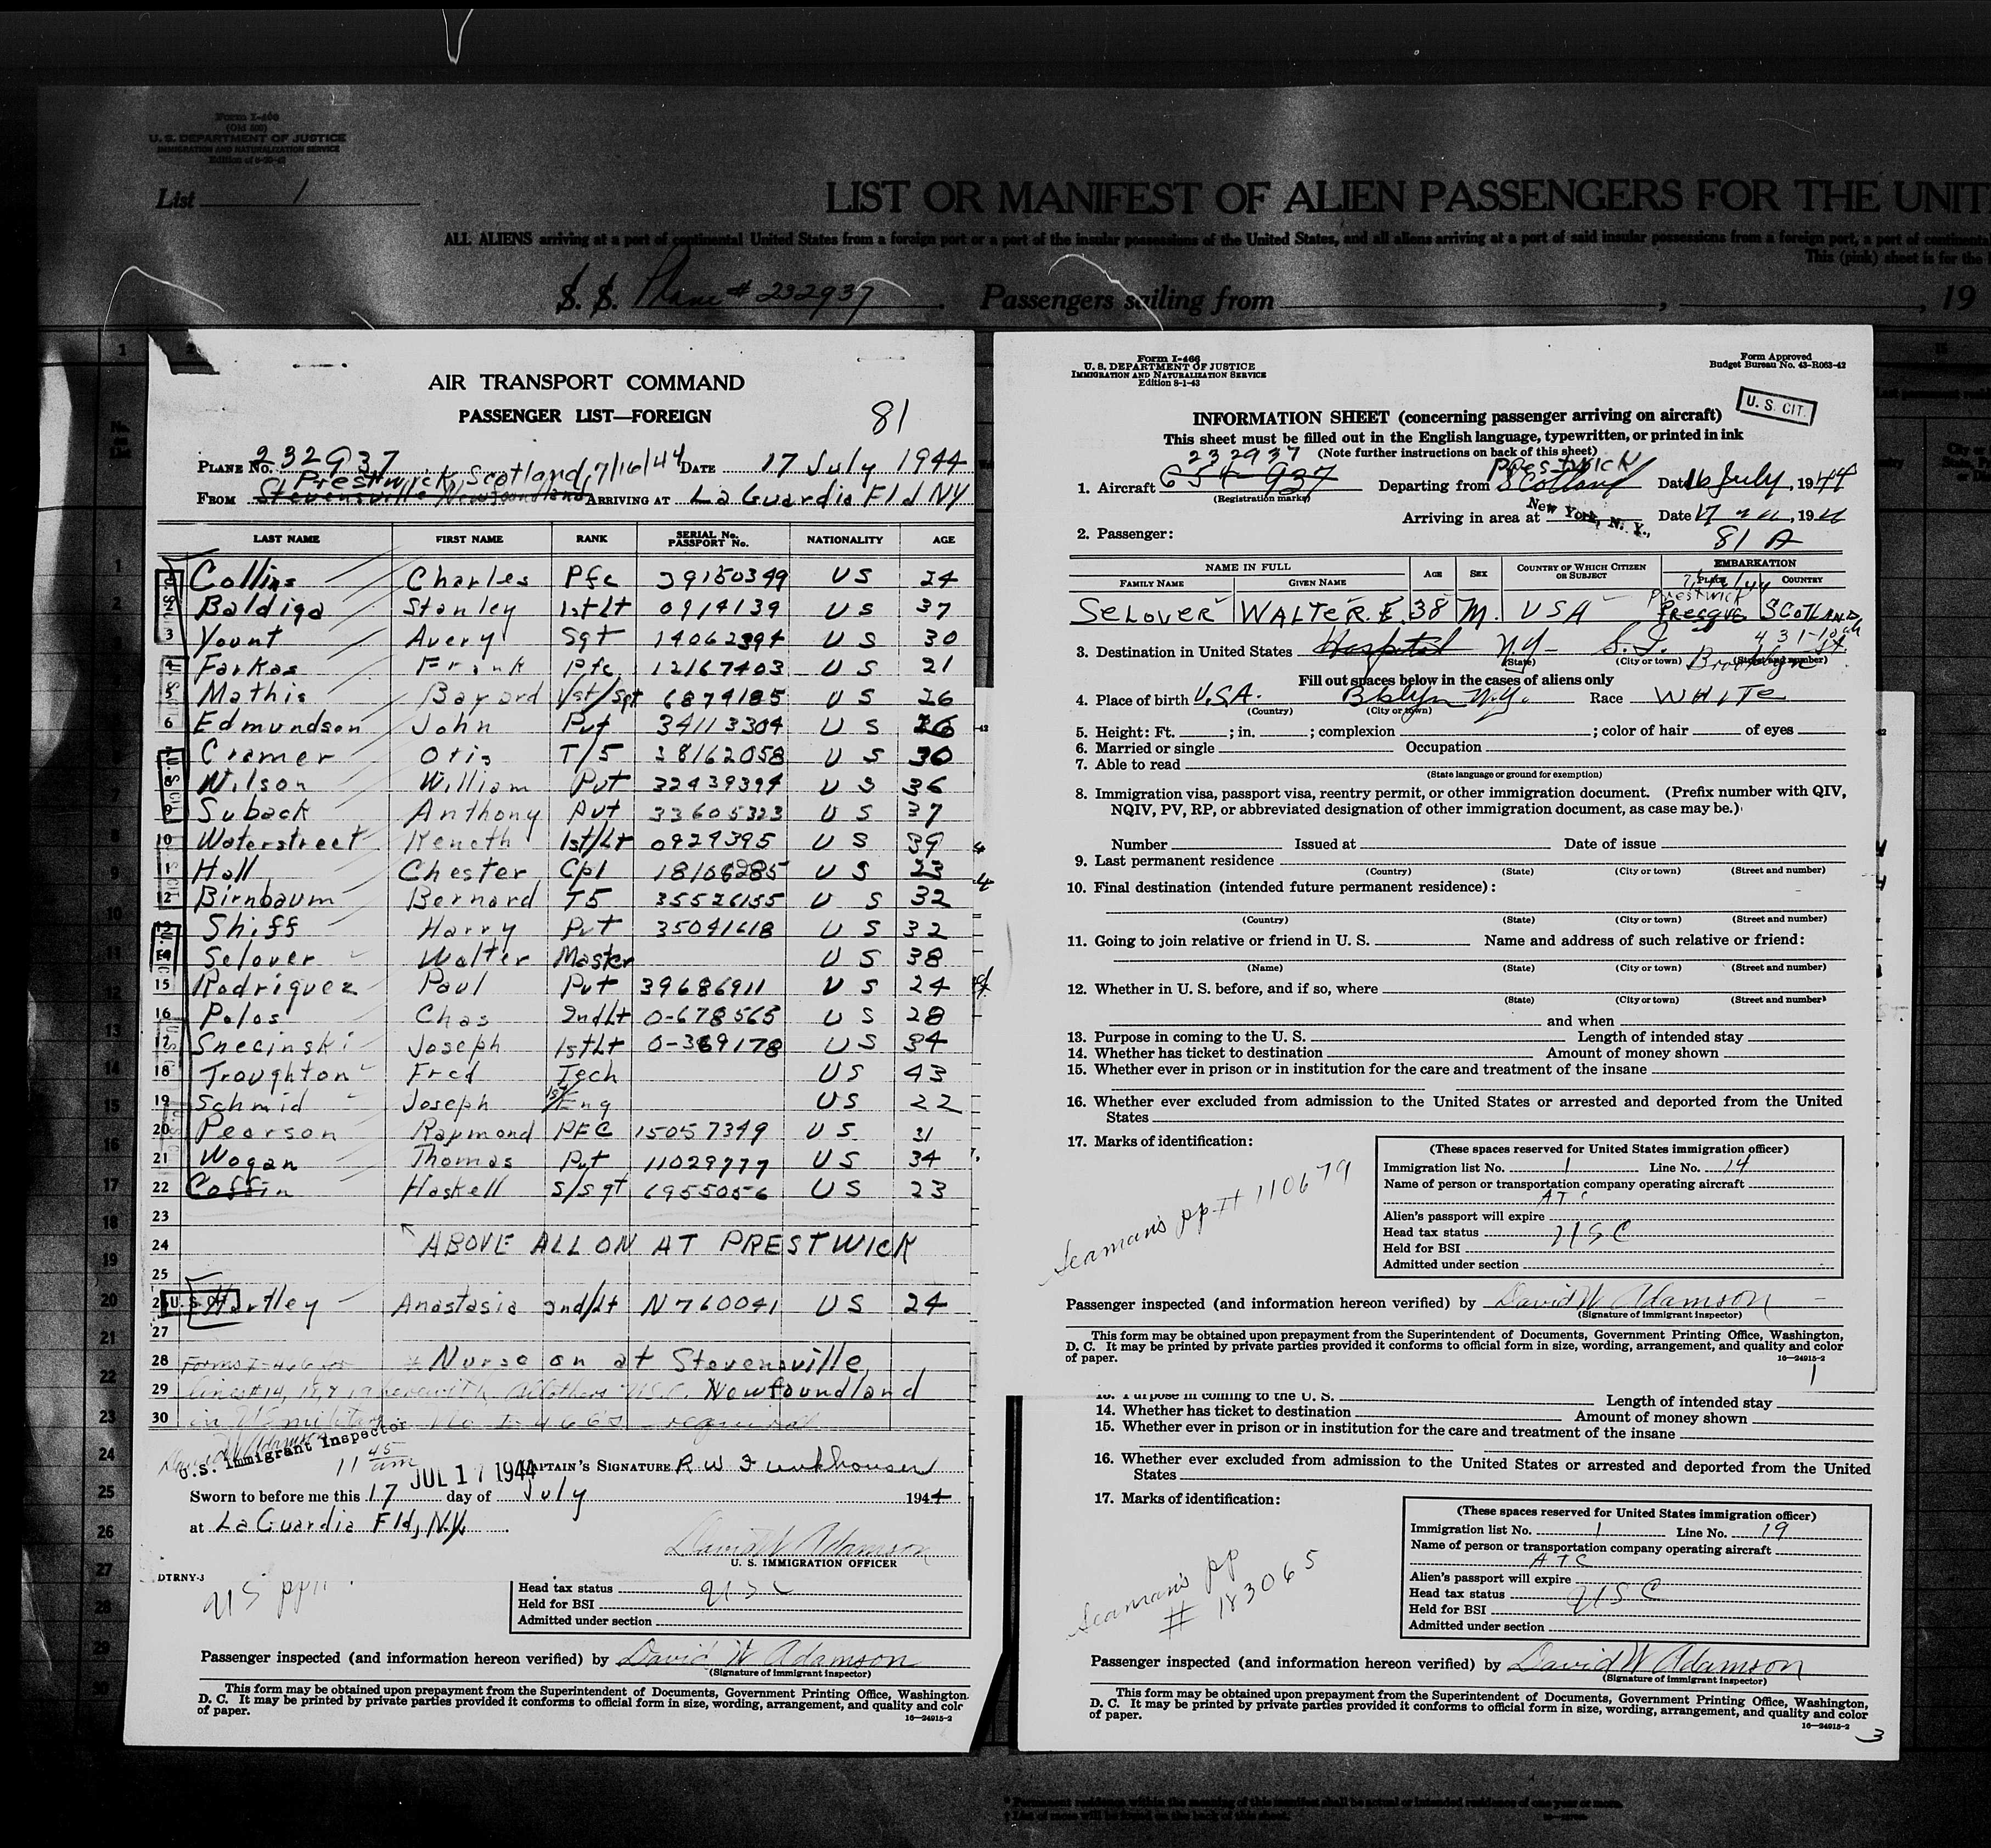 Form I-466
(Old 500)
U. S. DEPARTMENT OF JUSTICE
IMMIGRATION AND NATURALIZATION SERVICE
List 1
LIST OR MANIFEST OF ALIEN PASSENGERS FOR THE UNIT
ALL ALIENS arriving at a port of continental United States from a foreign port or a port of the insular possessions of the United States, and all aliens arriving at a port of said insular possessions from a foreign port, a port of continental
This (pink) sheet is for the
S. S. Plane # 232937 Passengers sailing from , , 19
AIR TRANSPORT COMMAND
PASSENGER LIST—FOREIGN
81
PLANE No. 232937 DATE 17 July 1944
Prestwick, Scotland, 7/16/44
FROM Stevensville Newfoundland ARRIVING AT La Guardia Fld NY
LAST NAME FIRST NAME RANK SERIAL No. PASSPORT No. NATIONALITY AGE
1 Collins Charles Pfc 39150349 US 24
2 Baldiga Stanley 1st Lt 0914139 US 37
3 Yount Avery Sgt 14062394 US 30
4 Farkas Frank Pfc 12167403 US 21
5 Mathis Bayard 1st/Sgt 6874185 US 26
6 Edmundson John Pvt 34113304 US 26
7 Cramer Otis T/5 38162058 US 30
8 Wilson William Pvt 32439394 US 36
9 Suback Anthony Pvt 33605323 US 37
10 Waterstreet Keneth 1st/Lt 0929395 US 39
11 Hall Chester Cpl 18106285 US 23
12 Birnbaum Bernard T5 35526155 US 32
13 Shiff Harry Pvt 35041618 US 32
14 Selover Walter Master US 38
15 Rodriquez Paul Pvt 39686911 US 24
16 Polos Chas 2nd Lt 0-678565 US 28
17 Snecinski Joseph 1st Lt 0-369178 US 34
18 Troughton Fred Tech US 43
19 Schmid Joseph 1st/Eng US 22
20 Pearson Raymond PFC 15057349 US 31
21 Wogan Thomas Pvt 11029777 US 34
22 Coffin Haskell S/Sgt 6955056 US 23
23
24 ABOVE ALL ON AT PRESTWICK
25
26 U. S. CIT. Hartley Anastasia 2nd/Lt N760041 US 24
27
28 Forms I-466 for * Nurse on at Stevensville,
29 lines #14, 18, 19 herewith All others U.S.C. Newfoundland
30 in US military No I-466s required
David W Adamson
U.S. Immigrant Inspector
11 45 am JUL 17 1944 CAPTAIN'S SIGNATURE R W Funkhouser
Sworn to before me this 17 day of July 1944
at La Guardia Fld, N.Y.
David W Adamson
U. S. IMMIGRATION OFFICER
DTRNY-3
US pp#
Head tax status USC
Held for BSI
Admitted under section
Passenger inspected (and information hereon verified) by David W Adamson
(Signature of immigrant inspector)
This form may be obtained upon prepayment from the Superintendent of Documents, Government Printing Office, Washington.
D. C. It may be printed by private parties provided it conforms to official form in size, wording, arrangement, and quality and colo
of paper.
16—24915-2
Form I-466
U. S. DEPARTMENT OF JUSTICE
IMMIGRATION AND NATURALIZATION SERVICE
Edition 8-1-43
Form Approved
Budget Bureau No. 43-R063-42
U. S. CIT.
INFORMATION SHEET (concerning passenger arriving on aircraft)
This sheet must be filled out in the English language, typewritten, or printed in ink
(Note further instructions on back of this sheet)
232937 Prestwick
1. Aircraft 654-937 Departing from Scotland Date 16 July, 1944
(Registration marks)
Arriving in area at New York, N. Y., Date 17 , 1944
2. Passenger: 81 A
NAME IN FULL AGE SEX COUNTRY OF WHICH CITIZEN OR SUBJECT EMBARKATION
FAMILY NAME GIVEN NAME PLACE COUNTRY
7/16/44
Prestwick
SELOVER WALTER. E. 38 M. USA Presque SCOTLAND
3. Destination in United States Hospital N.Y. S.I. Brooklyn
(State) (City or town) (Street and number)
Fill out spaces below in the cases of aliens only
4. Place of birth U.S.A. Bklyn N.Y. Race WHITE
(Country) (City or town)
5. Height: Ft. ; in. ; complexion ; color of hair of eyes
6. Married or single Occupation
7. Able to read
(State language or ground for exemption)
8. Immigration visa, passport visa, reentry permit, or other immigration document. (Prefix number with QIV,
NQIV, PV, RP, or abbreviated designation of other immigration document, as case may be.)
Number Issued at Date of issue
9. Last permanent residence
(Country) (State) (City or town) (Street and number)
10. Final destination (intended future permanent residence):
(Country) (State) (City or town) (Street and number)
11. Going to join relative or friend in U. S. Name and address of such relative or friend:
(Name) (State) (City or town) (Street and number)
12. Whether in U. S. before, and if so, where
(State) (City or town) (Street and number)
and when
13. Purpose in coming to the U. S. Length of intended stay
14. Whether has ticket to destination Amount of money shown
15. Whether ever in prison or in institution for the care and treatment of the insane
16. Whether ever excluded from admission to the United States or arrested and deported from the United
States
17. Marks of identification:
Seaman's pp # 110679
(These spaces reserved for United States immigration officer)
Immigration list No. 1 Line No. 14
Name of person or transportation company operating aircraft
ATC
Alien's passport will expire
Head tax status USC
Held for BSI
Admitted under section
Passenger inspected (and information hereon verified) by David W Adamson
(Signature of immigrant inspector)
This form may be obtained upon prepayment from the Superintendent of Documents, Government Printing Office, Washington,
D. C. It may be printed by private parties provided it conforms to official form in size, wording, arrangement, and quality and color
of paper.
16—24915-2
1
13. Purpose in coming to the U. S. Length of intended stay
14. Whether has ticket to destination Amount of money shown
15. Whether ever in prison or in institution for the care and treatment of the insane
16. Whether ever excluded from admission to the United States or arrested and deported from the United
States
17. Marks of identification:
Seaman's pp
# 183065
(These spaces reserved for United States immigration officer)
Immigration list No. 1 Line No. 19
Name of person or transportation company operating aircraft
ATC
Alien's passport will expire
Head tax status USC
Held for BSI
Admitted under section
Passenger inspected (and information hereon verified) by David W Adamson
(Signature of immigrant inspector)
This form may be obtained upon prepayment from the Superintendent of Documents, Government Printing Office, Washington,
D. C. It may be printed by private parties provided it conforms to official form in size, wording, arrangement, and quality and color
of paper.
16—24915-2
3
* Permanent residence within the meaning of this manifest shall be actual or intended residence of one year or more.